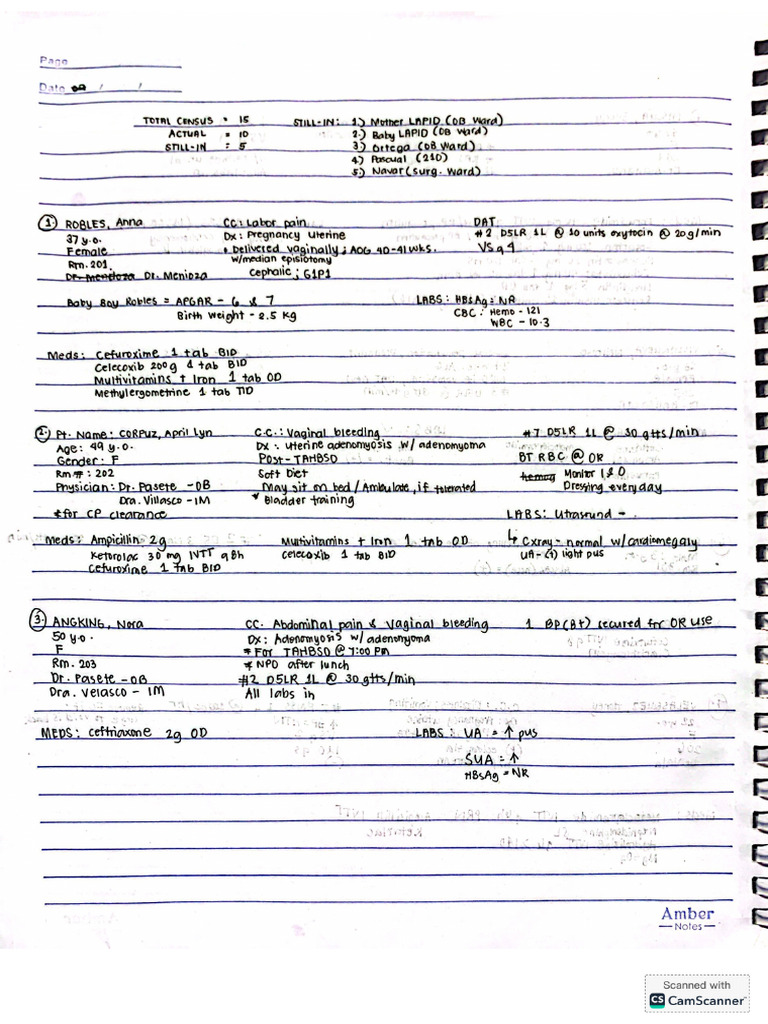 Page
Date / /
TOTAL CENSUS = 15 STILL-IN: 1.) Mother LAPID (OB Ward)
ACTUAL = 10 2.) Baby LAPID (OB Ward)
STILL-IN : 5 3) Ortega (OB Ward)
4) Pascual (210)
5.) Navar (surg. Ward)
1.) ROBLES, Anna CC: Labor pain DAT
37 y.o. Dx: Pregnancy Uterine #2 D5LR 1L @ 10 units oxytocin @ 20g/min
Female • Delivered vaginally; AOG 40-41 wks. VS q 4
Rm. 201 w/median episiotomy
Dr. Mendoza Dr. Menioza Cephalic; G1P1
Baby Boy Robles = APGAR - 6 & 7 LABS: HBsAg = NR
Birth Weight - 2.5 kg CBC: Hemo - 121
WBC - 10.3
Meds: Cefuroxime 1 tab BID
Celecoxib 200g 1 tab BID
Multivitamins + Iron 1 tab OD
Methylergometrine 1 tab TID
2.) Pt. Name: CORPUZ, April Lyn C.C.: Vaginal bleeding #7 D5LR 1L @ 30 gtts/min
Age: 49 y.o. Dx: Uterine adenomyosis w/ adenomyoma
Gender: F Post-TAHBSO BT RBC @ OR
Rm #: 202 Soft Diet Monitor I & O
Physician: Dr. Pasete - OB May sit on bed / Ambulate, if tolerated Dressing everyday
Dra. Villasco - IM * Bladder training
*for CP clearance LABS: Utrasound -
Meds: Ampicillin 2g Multivitamins + Iron 1 tab OD ↳ Cxray - normal w/cardiomegaly
Ketorolac 30 mg IVTT q8h Celecoxib 1 tab BID UA - (+) light pus
Cefuroxime 1 tab BID
3.) ANGKING, Nora CC: Abdominal pain & Vaginal bleeding 1 BP (B+) secured for OR use
50 y.o. Dx: Adenomyosis w/ adenomyoma
F * For TAHBSO @ 7:00 pm
Rm. 203 * NPO after lunch
Dr. Pasete - OB #2 D5LR 1L @ 30 gtts/min
Dra. Velasco - IM All labs in
MEDS: ceftriaxone 2g OD LABS: UA = ↑ pus
SUA = ↑
HBsAg = NR
Amber
Notes
Scanned with
CS CamScanner